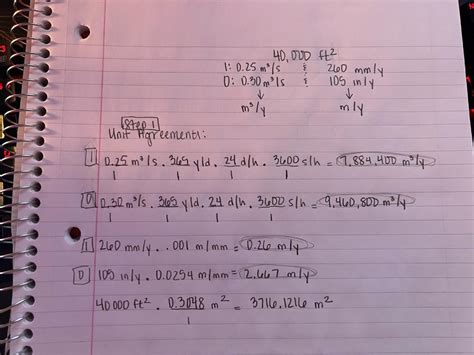 40,000 ft²
I: 0.25 m³/s & 260 mm/y
O: 0.30 m³/s & 105 in/y
↓ ↓
m³/y m/y
Step 1
Unit Agreements:
I 0.25 m³/s · 365 y/d · 24 d/h · 3600 s/h = 7,884,400 m³/y
1 1 1 1
O 0.30 m³/s · 365 y/d · 24 d/h · 3600 s/h = 9,460,800 m³/y
1 1 1 1
I 260 mm/y · .001 m/mm = 0.26 m/y
O 105 in/y · 0.0254 m/mm = 2.667 m/y
40000 ft² · 0.3048 m² = 3716.1216 m²
1